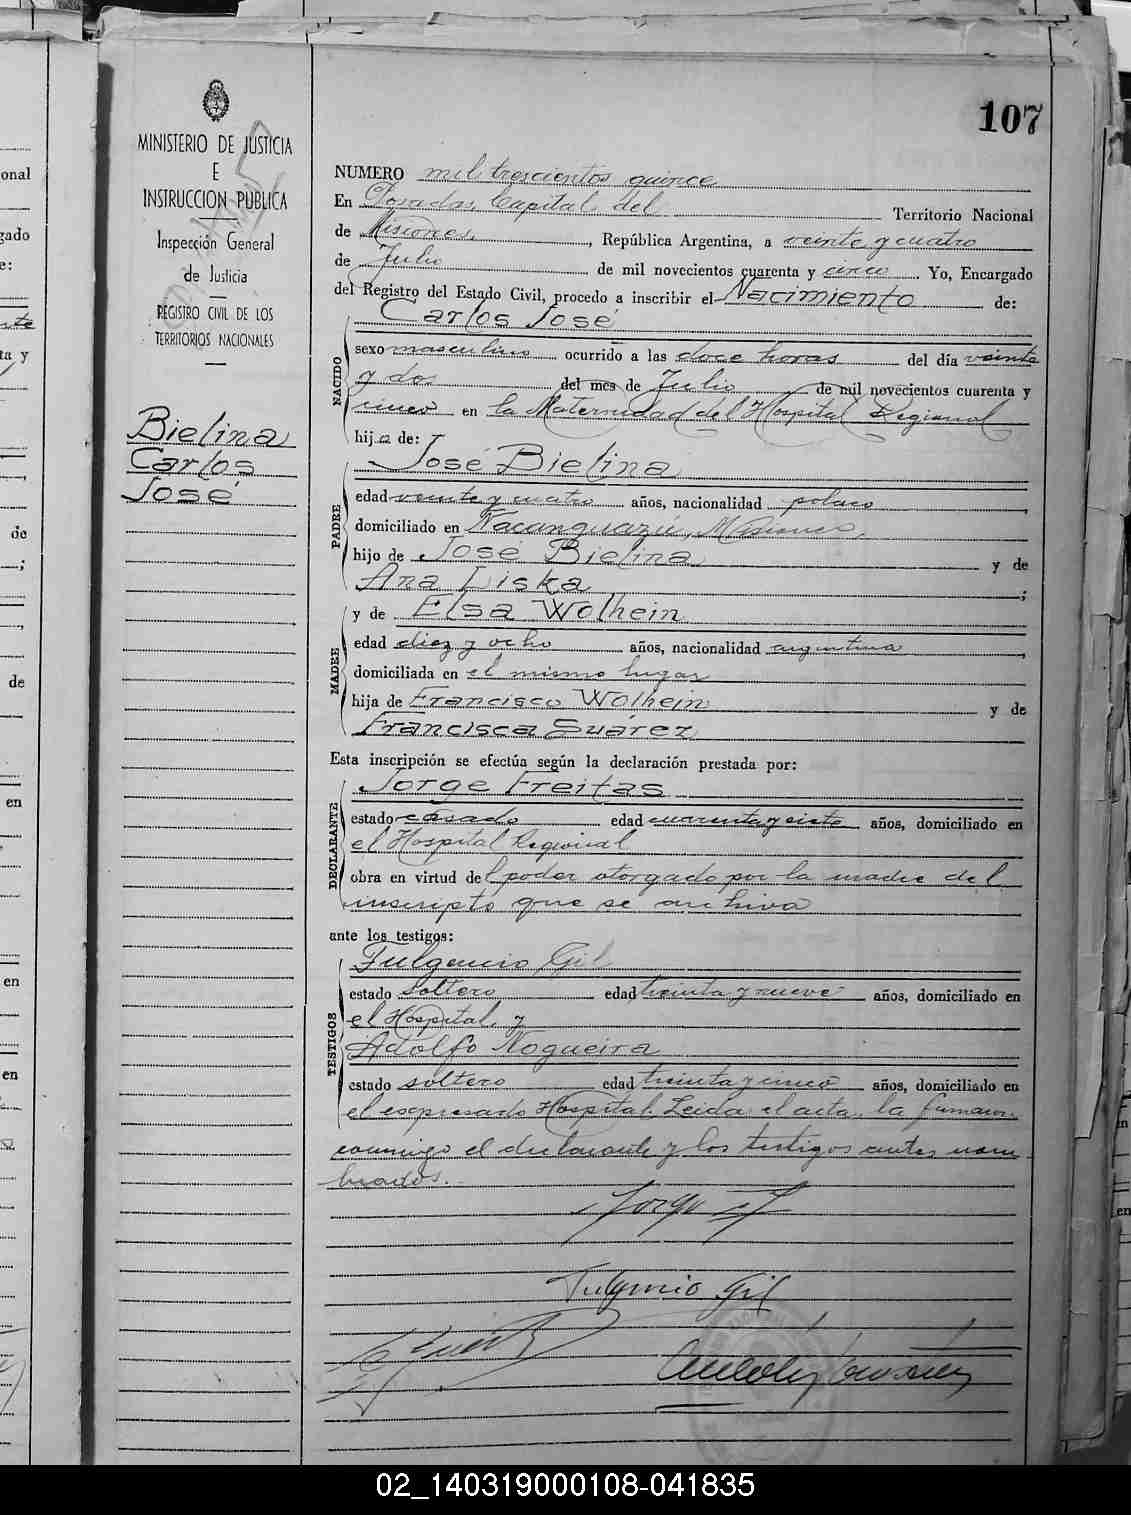 107
MINISTERIO DE JUSTICIA
E
INSTRUCCION PUBLICA
Inspección General
de Justicia
REGISTRO CIVIL DE LOS
TERRITORIOS NACIONALES
Bielina
Carlos
José
NUMERO mil trescientos quince
En Posadas, Capital del Territorio Nacional
de Misiones, República Argentina, a veinte y cuatro
de Julio de mil novecientos cuarenta y cinco Yo, Encargado
del Registro del Estado Civil, procedo a inscribir el Nacimiento de:
Carlos José
NACIDO
sexo masculino ocurrido a las doce horas del día veinte
y dos del mes de Julio de mil novecientos cuarenta y
cinco en la Maternidad del Hospital Regional
hijo de:
José Bielina
PADRE
edad veinte y cuatro años, nacionalidad polaco
domiciliado en Ñacanguazú, Misiones,
hijo de José Bielina y de
Ana Liska ;
y de Elsa Wolhein
MADRE
edad diez y ocho años, nacionalidad argentina
domiciliada en el mismo lugar
hija de Francisco Wolhein y de
Francisca Suárez
Esta inscripción se efectúa según la declaración prestada por:
Jorge Freitas
DECLARANTE
estado casado edad cuarenta y siete años, domiciliado en
el Hospital Regional
obra en virtud del poder otorgado por la madre del
inscripto que se archiva
ante los testigos:
Fulgencio Gil
TESTIGOS
estado soltero edad treinta y nueve años, domiciliado en
el Hospital, y
Adolfo Nogueira
estado soltero edad treinta y cinco años, domiciliado en
el expresado Hospital. Leida el acta, la firmaron
conmigo el declarante y los testigos antes nom
brados.
Jorge
Fulgencio Gil
onal
gado
e:
ta y
de
;
de
en
en
en
02_140319000108-041835